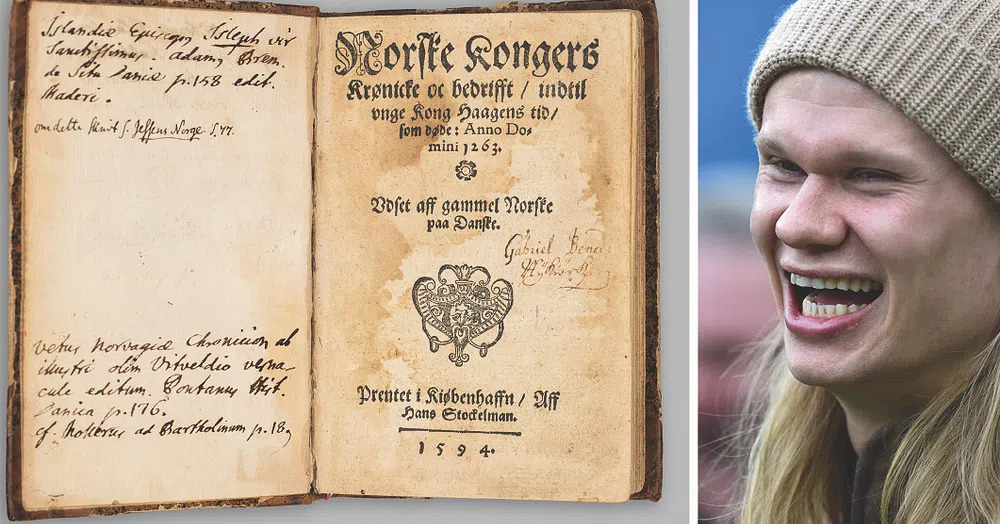 Islandiæ Episcopus Isleph vir
sanctissimus. adamus Brem.
de Situ Daniæ p. 158 edit.
Maderi.
om dette skrivt s. Jessens Norge. S. 77.
vetus Norvagiæ Chronicon ab
illustri olim Vitveldio verna
cule editum. Pontanus Hist.
Danica p. 176.
cf. ad Bartholinum p. 18
Norſke Kongers
Krønicke oc bedrifft / indtil
vnge Kong Haagens tid/
ſom døde: Anno Do-
mini 1263.
Vdſet aff gammel Norſke
paa Danſke.
Gabriel
Prentet i Kiøbenhaffn / Aff
Hans Stockelman.
1594.